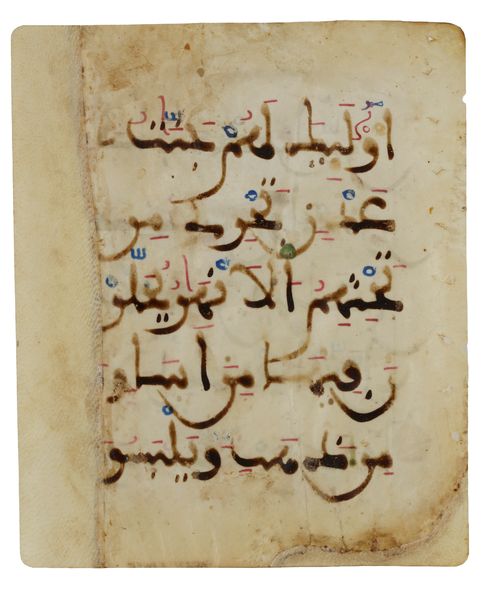 أُوْلَٰئِكَ لَهُمْ جَنَّٰتُ
عَدْنٍ تَجْرِى مِن
تَحْتِهِمُ اَلَانْهَٰرُ يُحَلَّوْ
نَ فِيهَا مِنَ اَسَاوِرَ
مِن ذَهَبٍ وَيَلْبَسُو